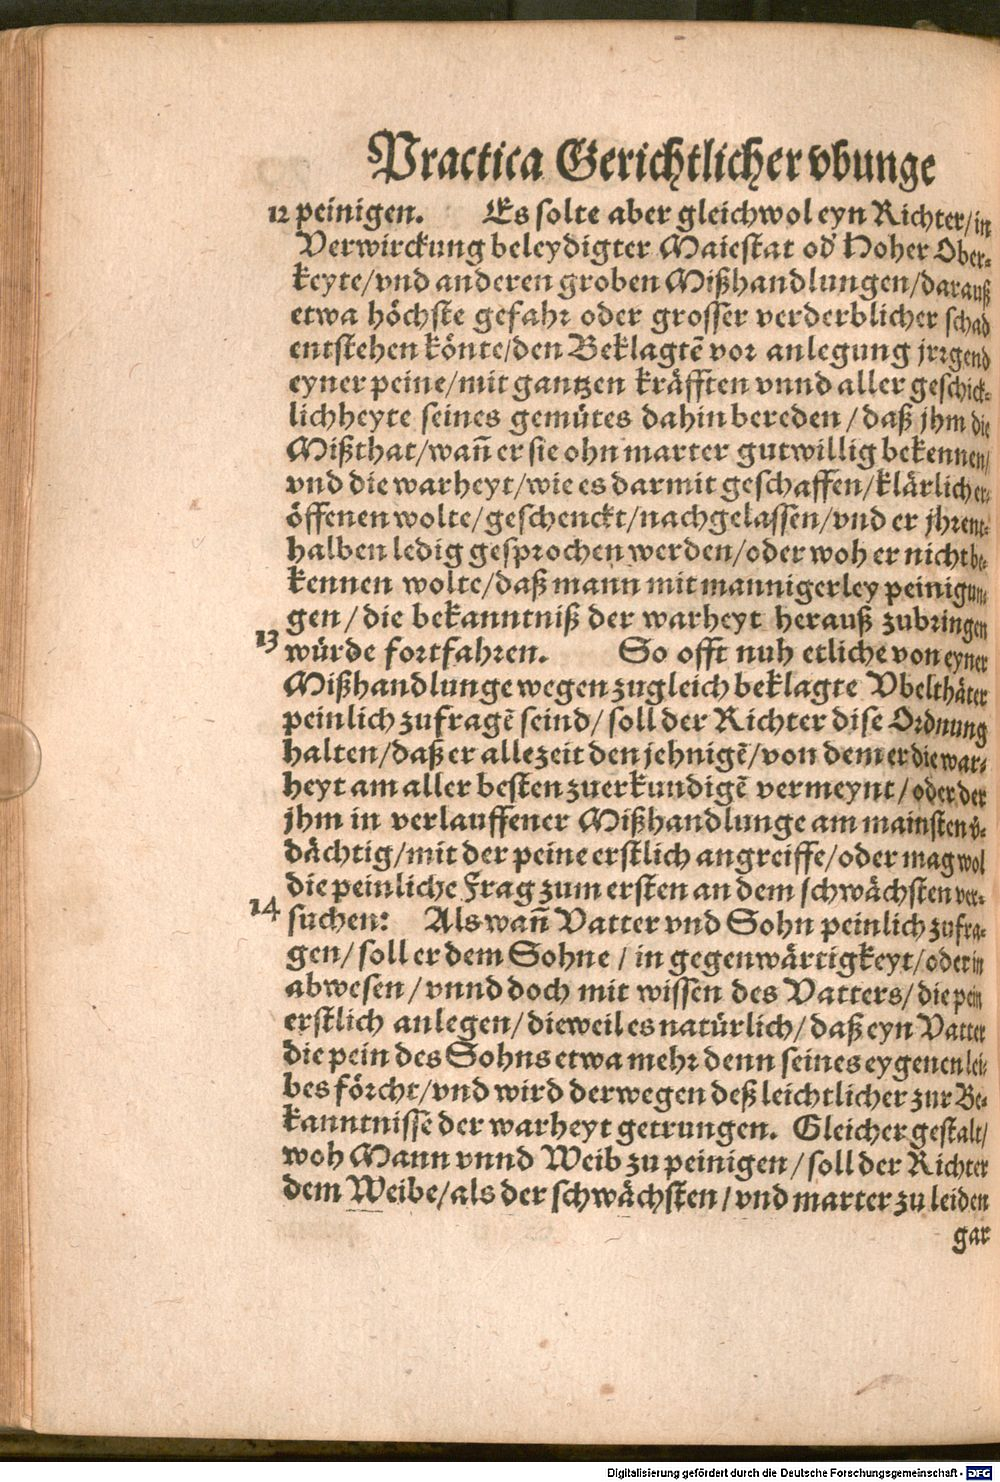 Practica Gerichtlicher vbunge
12 peinigen. Es solte aber gleichwol eyn Richter/in
Verwirckung beleydigter Maiestat od' Hoher Ober-
keyte/vnd anderen groben Mißhandlungen/darauß
etwa höchste gefahr oder grosser verderblicher schad
entstehen könte/den Beklagtē vor anlegung jrrgend
eyner peine/mit gantzen kräfften vnnd aller geschick-
lichheyte seines gemütes dahin bereden / daß jhm die
Mißthat/wañ er sie ohn marter gutwillig bekennen/
vnd die warheyt/wie es darmit geschaffen/klärlich er-
öffenen wolte/geschenckt/nachgelassen/vnd er jhrent-
halben ledig gesprochen werden/oder woh er nicht be-
kennen wolte/daß mann mit mannigerley peinigun-
gen / die bekanntniß der warheyt herauß zubringen
13 würde fortfahren. So offt nuh etliche von eyner
Mißhandlunge wegen zugleich beklagte Vbelthäter
peinlich zufragē seind/ soll der Richter dise Ordnung
halten/daß er allezeit den jehnigē/von dem er die war-
heyt am aller besten zuerkundigē vermeynt / oder der
jhm in verlauffener Mißhandlunge am mainsten v̄-
dächtig/mit der peine erstlich angreiffe/oder mag wol
die peinliche Frag zum ersten an dem schwächsten ver-
14 suchen: Als wañ Vatter vnd Sohn peinlich zufra-
gen/ soll er dem Sohne / in gegenwärtigkeyt/oder in
abwesen / vnnd doch mit wissen des Vatters/ die pein
erstlich anlegen/dieweil es natürlich/daß eyn Vatter
die pein des Sohns etwa mehr denn seines eygenen lei-
bes förcht/vnd wird derwegen deß leichtlicher zur Be-
kanntnisse der warheyt getrungen. Gleicher gestalt/
woh Mann vnnd Weib zu peinigen / soll der Richter
dem Weibe/als der schwächsten / vnd marter zu leiden
gar
Digitalisierung gefördert durch die Deutsche Forschungsgemeinschaft - DFG